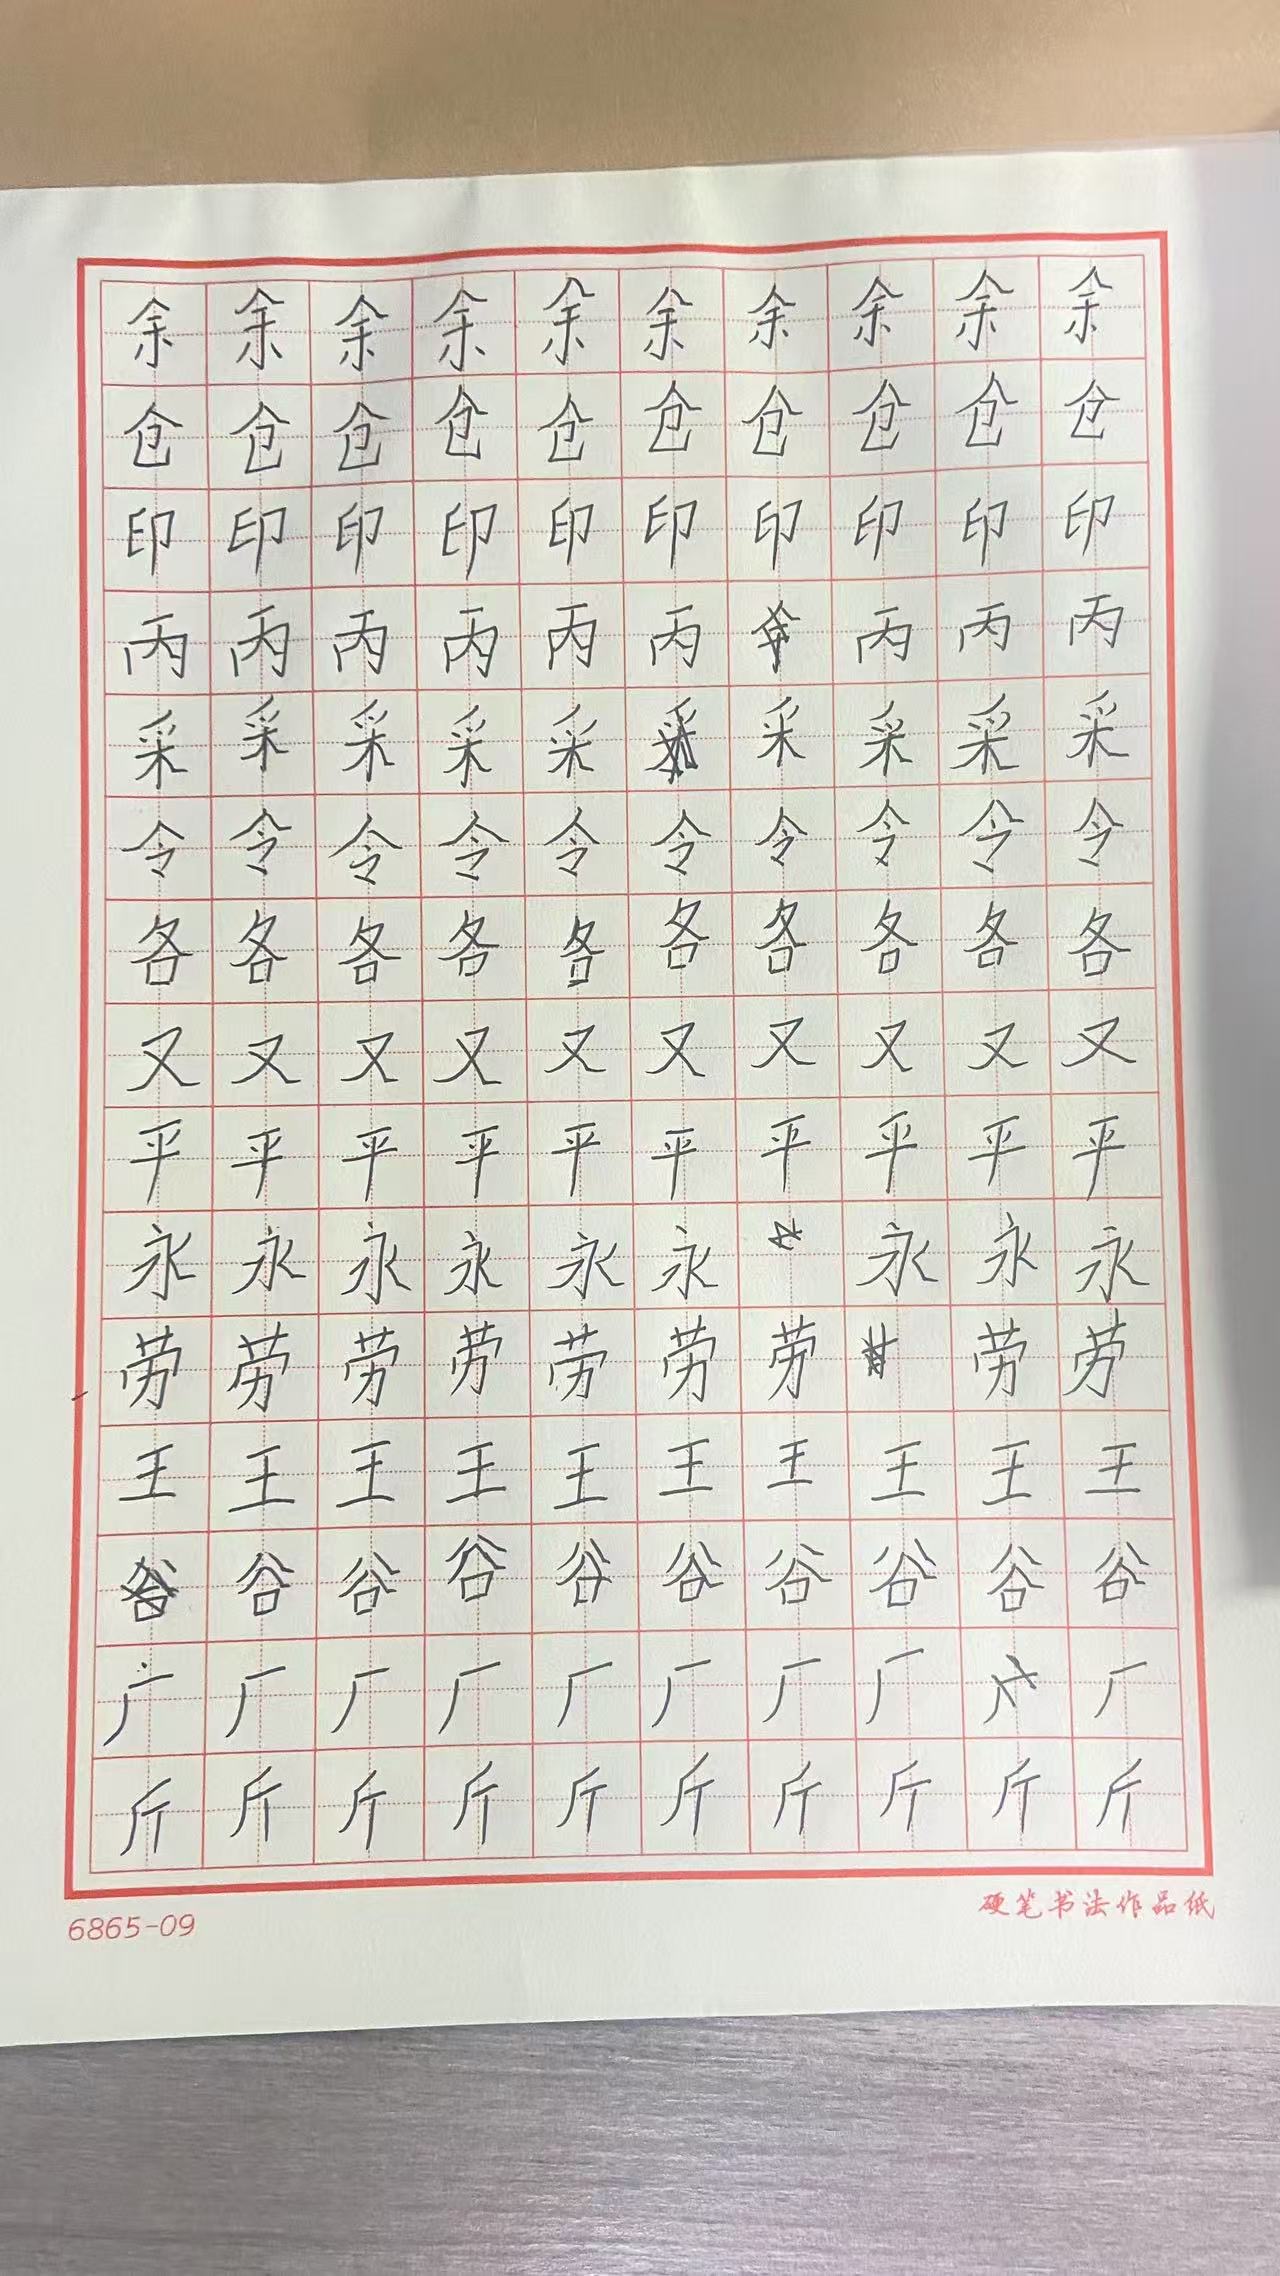 余余余余余余余余余余
仓仓仓仓仓仓仓仓仓仓
印印印印印印印印印印
丙丙丙丙丙丙丙丙丙
采采采采采采采采采
令令令令令令令令令令
各各各各各各各各各各
又又又又又又又又又又
平平平平平平平平平平
永永永永永永永永永
劳劳劳劳劳劳劳劳劳
王王王王王王王王王王
谷谷谷谷谷谷谷谷谷
广厂厂厂厂厂厂厂厂
斤斤斤斤斤斤斤斤斤斤
6865-09
硬笔书法作品纸